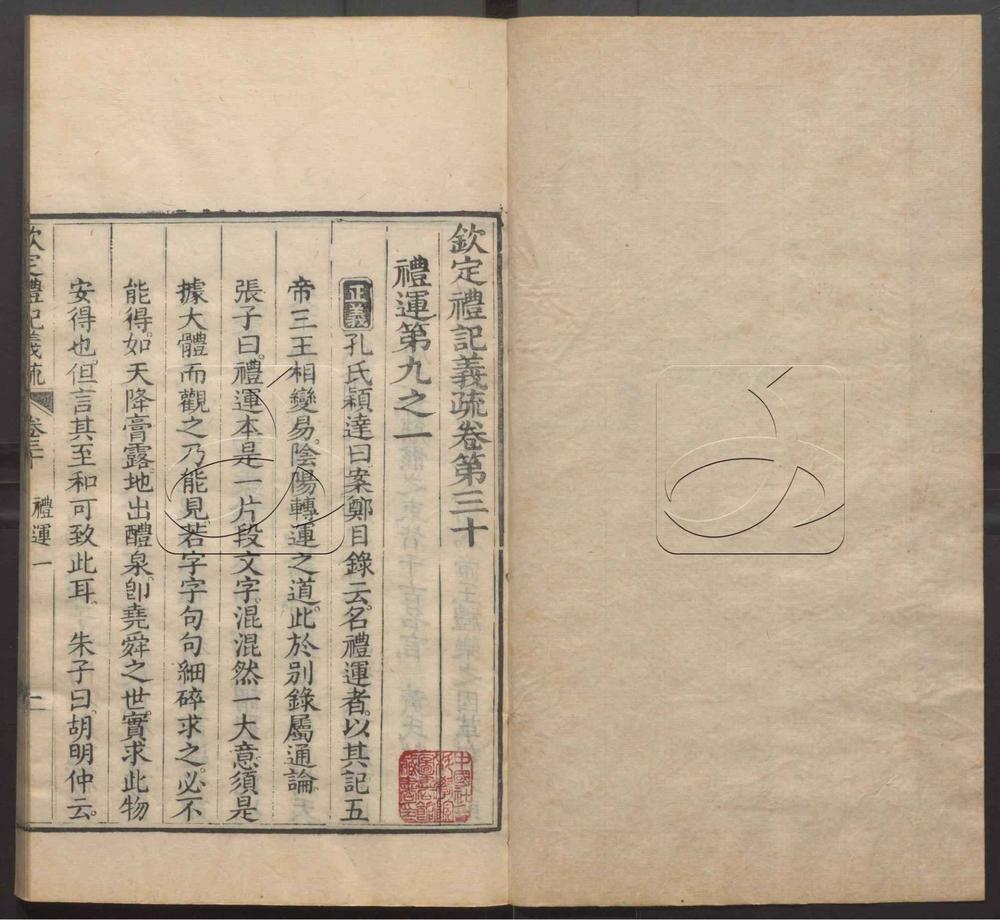 欽定禮記義疏卷第三十
禮運第九之一
正義孔氏穎達曰案鄭目錄云名禮運者以其記五
帝三王相變易陰陽轉運之道此於別錄屬通論
張子曰禮運本是一片段文字混混然一大意須是
據大體而觀之乃能見若字字句句細碎求之必不
能得如天降膏露地出醴泉卽堯舜之世實求此物
安得也但言其至和可致此耳　朱子曰胡明仲云
欽定禮記義疏　卷三十　禮運一